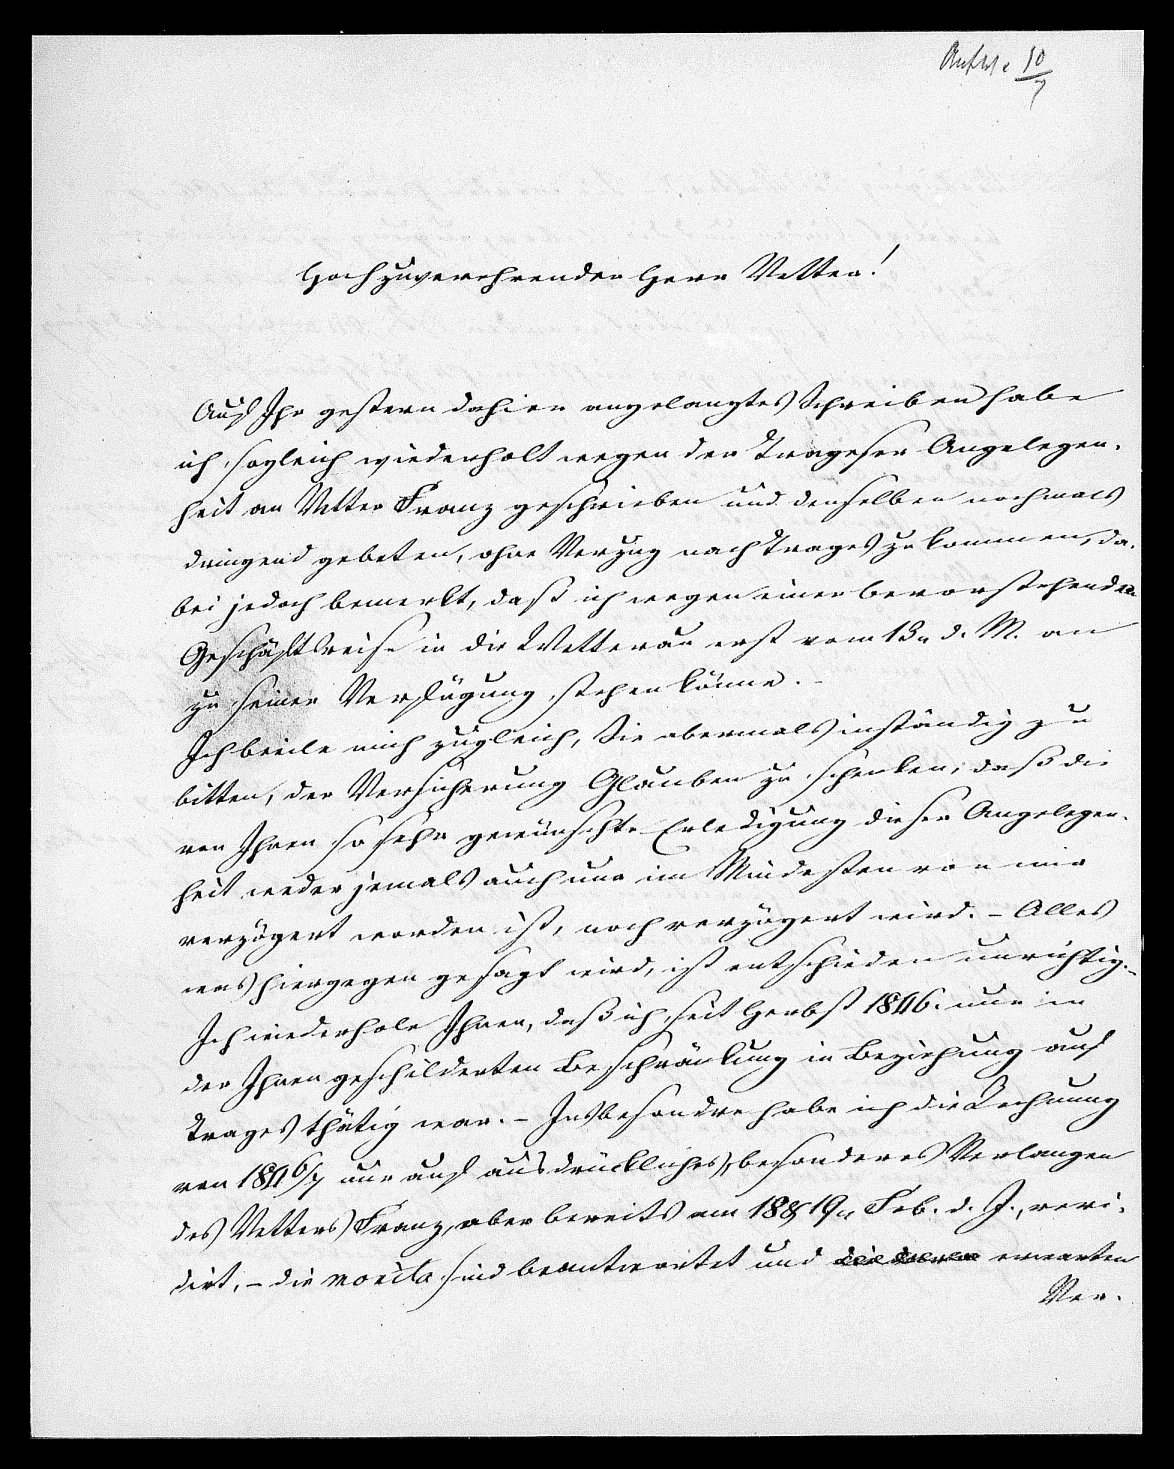 10/7
Hochzuverehrender Herr Vetter!
Auf Ihr gestern dahier angelangtes Schreiben habe
ich sogleich wiederholt wegen der Trageser Angelegen-
heit an Vetter Franz geschrieben und denselben nochmals
dringend gebeten, ohne Verzug nach Trages zu kommen, da-
bei jedoch bemerkt, daß ich wegen einer bevorstehenden
Geschäftsreise in die Wetterau erst vom 13n d. M. an
zu seiner Verfügung stehen könne. -
Ich beeile mich zugleich, Sie abermals inständig zu
bitten, der Versicherung Glauben zu schenken, daß die
von Ihnen so sehr gewünschte Erledigung dieser Angelegen-
heit weder jemals auch nur im Mindesten von mir
verzögert worden ist, noch verzögert wird. - Alles
was hiergegen gesagt wird, ist entschieden unrichtig. -
Ich wiederhole Ihnen, daß ich seit Herbst 1846. nur in
der Ihnen geschilderten Beschränkung in Beziehung auf
Trages thätig war. - Insbesondre habe ich die Rechnung
von 1846/7 nur auf ausdrückliches, besonderes Verlangen
des Vetters Franz, aber bereits am 19n Feb. d. J., revi-
dirt, - die monita sind beantwortet und erwarten
Ver-